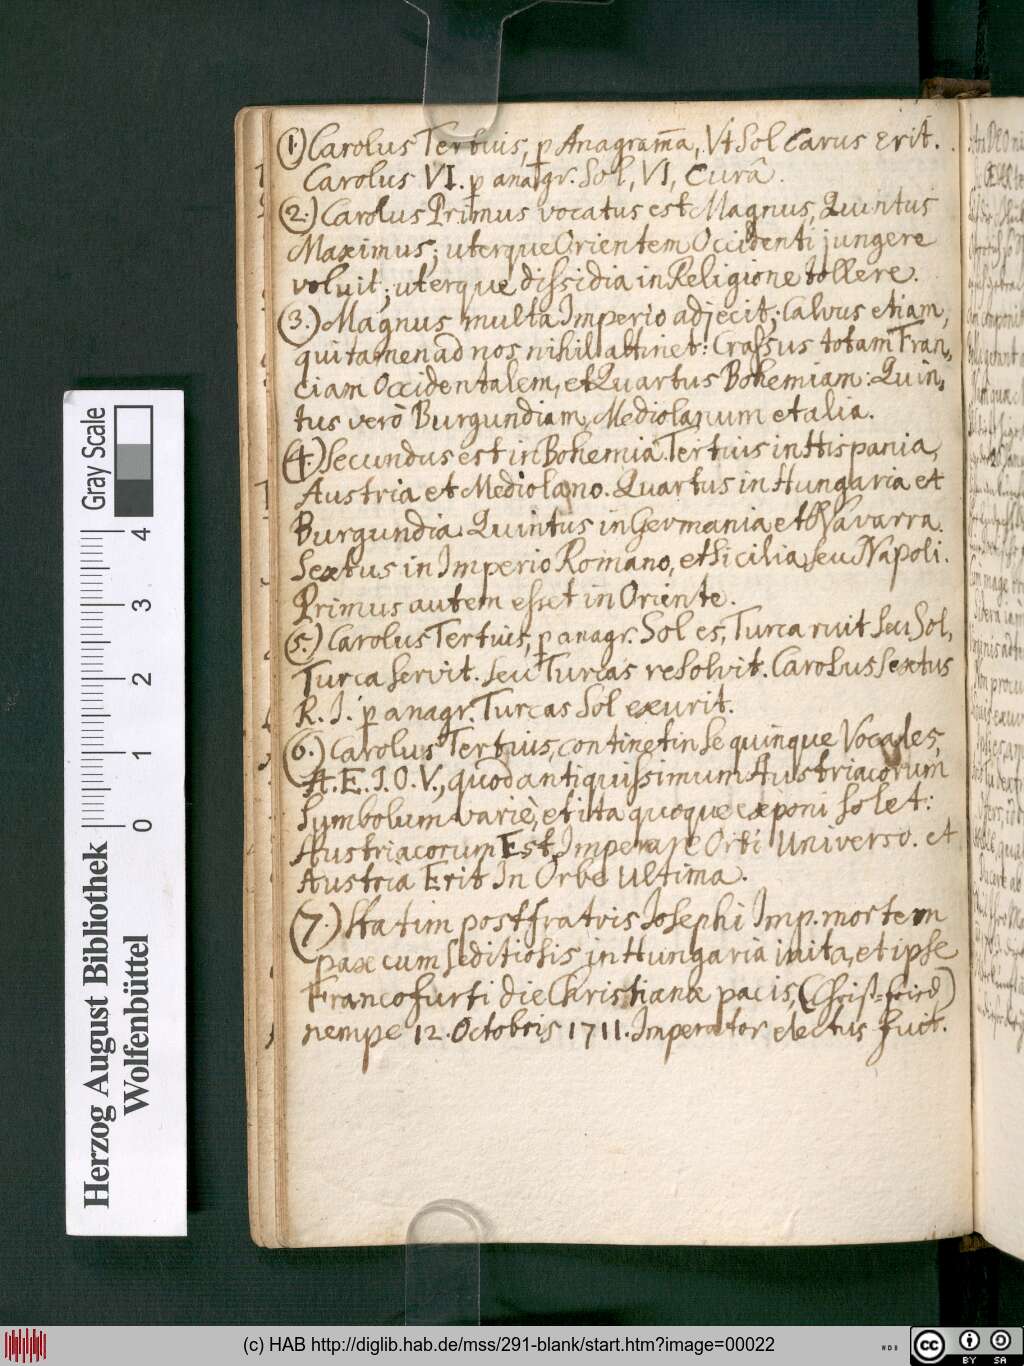 1.) Carolus Tertius, p Anagram̄a, Vt Sol Carus Erit.
Carolus VI. p anagr. Sol, VI, Curâ.
2.) Carolus Primus vocatus est Magnus, Quintus
Maximus; uterque Orientem Occidenti jungere
voluit; uterque dissidia in Religione tollere.
3.) Magnus multa Imperio adjecit; Calvus etiam,
qui tamen ad nos nihil attinet: Crassus totam Fran-
ciam Occidentalem, et Quartus Bohemiam: Quin-
tus verò Burgundiam, Mediolanum et alia.
4.) Secundus est in Bohemia. Tertius in Hispania,
Austria et Mediolano. Quartus in Hungaria et
Burgundia. Quintus in Germania et Navarra.
Sextus in Imperio Romano, et Sicilia, seu Napoli.
Primus autem esset in Oriente.
5.) Carolus Tertius, p anagr. Sol es, Turca ruit seu Sol,
Turca servit. seu Turcas resolvit. Carolus Sextus
R. I. p anagr. Turcas Sol exurit.
6.) Carolus Tertius, continet in se quinque Vocales,
A. E. I. O. V., quod antiquissimum Austriacorum
Symbolum variè, et ita quoque exponi solet:
Austriacorum Est Imperare Orbi Universo. et
Austria Erit In Orbe Ultima.
7.) Statim post fratris Josephi Imp. mortem
pax cum seditiosis in Hungaria inita, et ipse
Francofurti die Christianæ pacis,
nempe 12. Octobris 1711. Imperator electus fuit.
Gray Scale
0 1 2 3 4
Herzog August Bibliothek
Wolfenbüttel
(c) HAB http://diglib.hab.de/mss/291-blank/start.htm?image=00022
WDB
cc BY SA